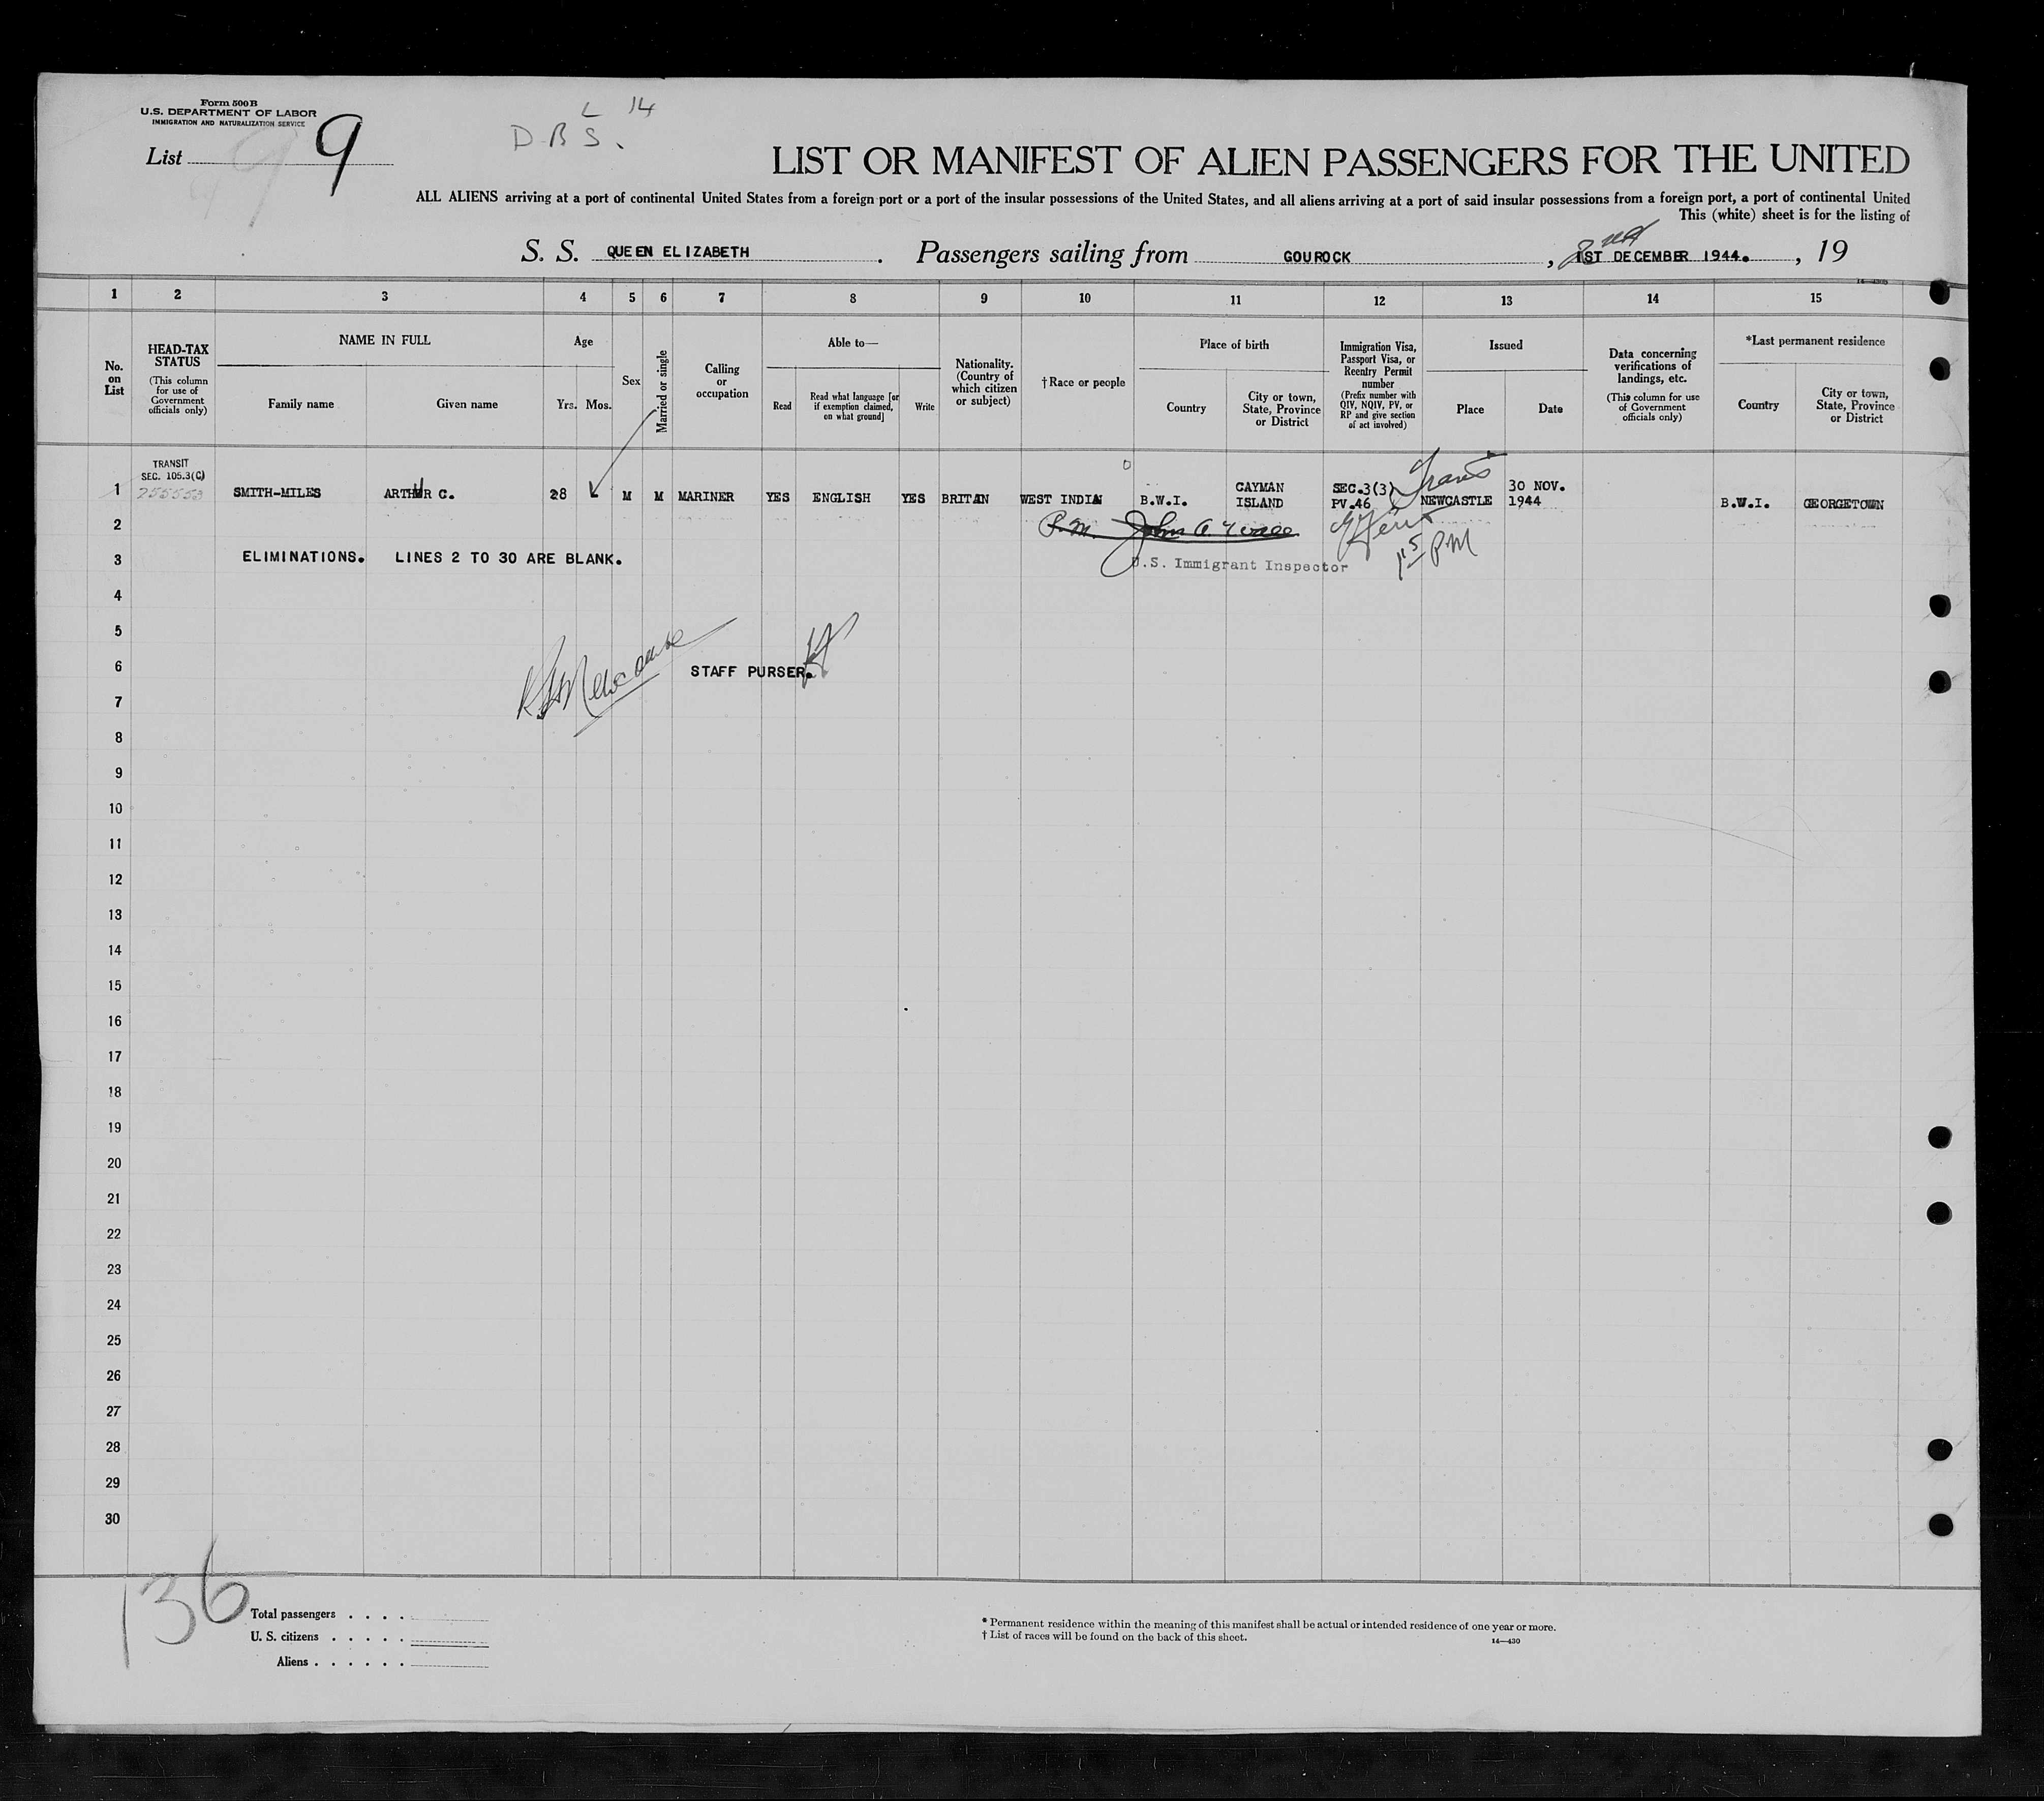 Form 500B
U.S. DEPARTMENT OF LABOR
IMMIGRATION AND NATURALIZATION SERVICE
List 9
L 14
D.B.S.
LIST OR MANIFEST OF ALIEN PASSENGERS FOR THE UNITED
ALL ALIENS arriving at a port of continental United States from a foreign port or a port of the insular possessions of the United States, and all aliens arriving at a port of said insular possessions from a foreign port, a port of continental United
This (white) sheet is for the listing of
S. S. QUEEN ELIZABETH. Passengers sailing from GOUROCK, 2nd 1ST DECEMBER 1944., 19
1 2 3 4 5 6 7 8 9 10 11 12 13 14 15
No. on List
HEAD-TAX STATUS
(This column for use of Government officials only)
NAME IN FULL
Family name
Given name
Age
Yrs. Mos.
Sex
Married or single
Calling or occupation
Able to—
Read
Read what language [or if exemption claimed, on what ground]
Write
Nationality. (Country of which citizen or subject)
†Race or people
Place of birth
Country
City or town, State, Province or District
Immigration Visa, Passport Visa, or Reentry Permit number
(Prefix number with QIV, NQIV, PV, or RP and give section of act involved)
Issued
Place
Date
Data concerning verifications of landings, etc.
(This column for use of Government officials only)
*Last permanent residence
Country
City or town, State, Province or District
TRANSIT
SEC. 105.3(C)
1 SMITH-MILES ARTHUR C. 28 M M MARINER YES ENGLISH YES BRITAIN WEST INDIAN B.W.I. CAYMAN ISLAND SEC.3(3) PV.46 NEWCASTLE 30 NOV. 1944 B.W.I. GEORGETOWN
Trans
2
P.M. John
115 PM
U.S. Immigrant Inspector
3 ELIMINATIONS. LINES 2 TO 30 ARE BLANK.
4
5
6 STAFF PURSER.
7
8
9
10
11
12
13
14
15
16
17
18
19
20
21
22
23
24
25
26
27
28
29
30
136
Total passengers . . . .
U. S. citizens . . . . .
Aliens . . . . . .
* Permanent residence within the meaning of this manifest shall be actual or intended residence of one year or more.
† List of races will be found on the back of this sheet.
14—430